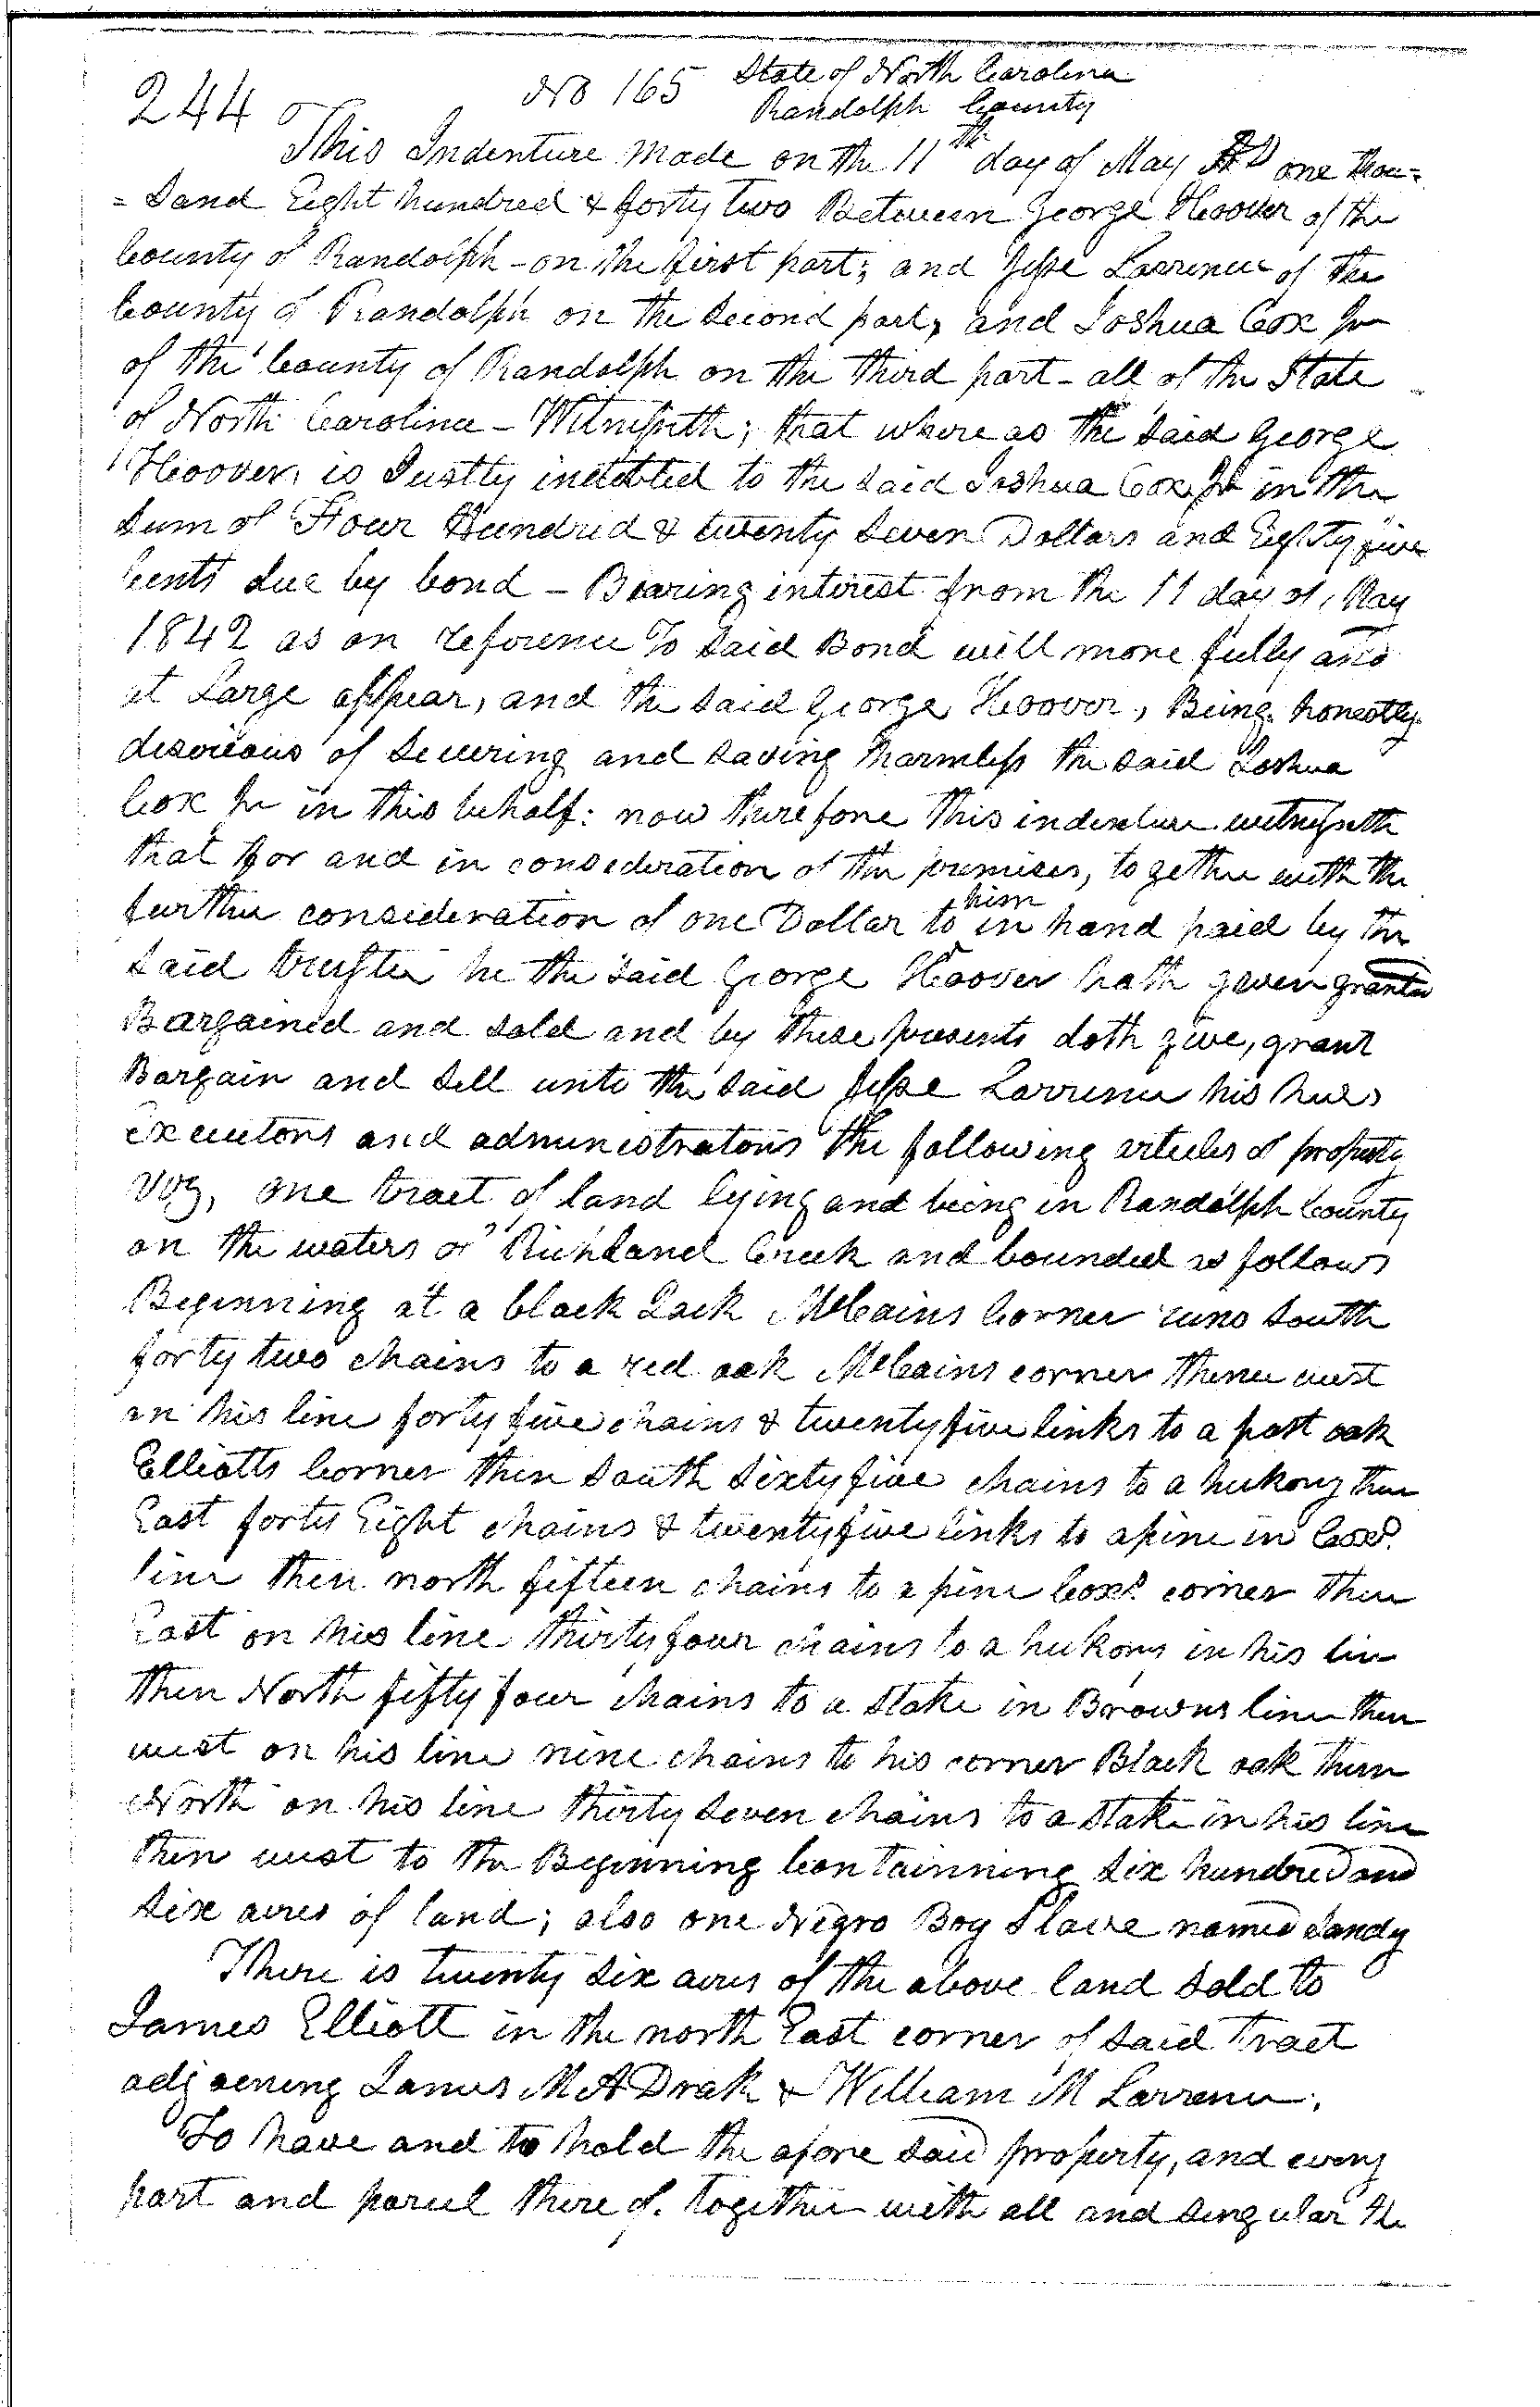 244
No 165 State of North Carolina
Randolph County
This Indenture made on the 11th day of May AD one thou=
=sand Eight hundred & forty two Between George Hoover of the
County of Randolph - on the first part; and Jesse Larrence of the
County of Randolph on the second part, and Joshua Cox Jr
of the County of Randolph on the third part - all of the State
of North Carolina - Witnesseth; that where as the said George
Hoover, is Justly indebted to the said Joshua Cox Jr in the
sum of Four Hundred & twenty seven Dollars and Eighty five
Cents due by bond - Bearing interest from the 11 day of May
1842 as on reference To said Bond will more fully and
at Large appear, and the said George Hoover, Being honestly
desorieous of securing and saving harmless the said Joshua
Cox Jr in this behalf: now therefore This indenture witnesseth
that for and in consideration of the premises, to gether with the
further consideration of one Dollar to him in hand paid by the
said trustee he the said George Hoover hath given granted
Bargained and sold and by these presents doth give, grant
Bargain and sell unto the said Jesse Larrence his heirs
Executors and administrators the following articles of property
viz, one tract of land lying and being in Randolph County
on the waters of Richland Creek and bounded as follows
Beginning at a black Jack McCains Corner runs south
forty two chains to a red oak McCains corner thence west
on his line forty five chains & twenty five links to a post oak
Elliotts Corner then south sixty five chains to a hickory then
East forty Eight chains & twenty five links to a pine in Coxs
line then north fifteen chains to a pine Coxs corner then
East on his line thirty four chains to a hickory in his line
then North fifty four chains to a stake in Browns line then
west on his line nine chains to his corner Black oak then
North on his line thirty seven chains to a stake in his line
then west to the Beginning Containning six hundred and
six acres of land; also one Negro Boy Slave named Sandy
There is twenty six acres of the above land sold to
James Elliott in the north East corner of said tract
adjoening James M A Drak & William M Larrence.
To have and to hold the afore said property, and every
part and parcel there of. together with all and singular the